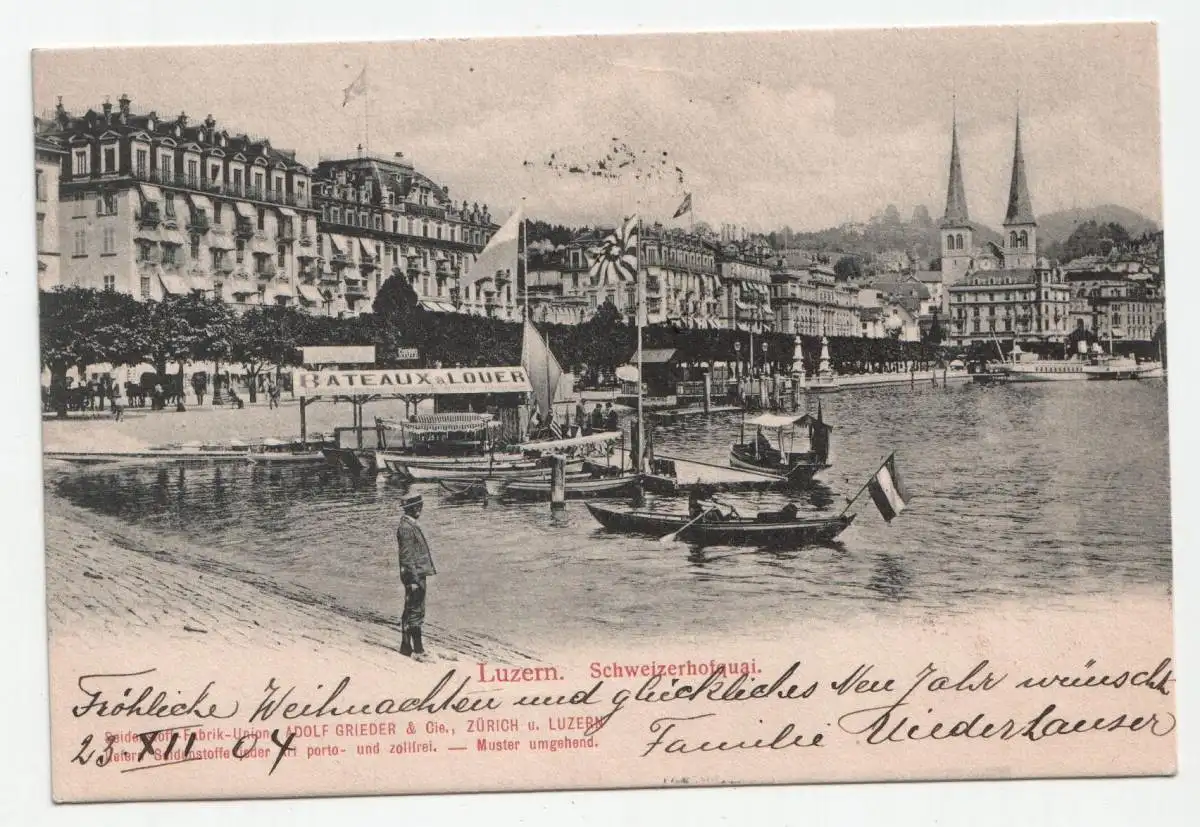 BATEAUX à LOUER
Luzern. Schweizerhofquai.
Fröhliche Weihnachten und glückliches Neu Jahr wünscht
Seidenstoff-Fabrik-Union, ADOLF GRIEDER & Cie., ZÜRICH u. LUZERN
liefern Seidenstoffe jeder Art porto- und zollfrei. — Muster umgehend.
23 XII 04
Familie Niederhauser